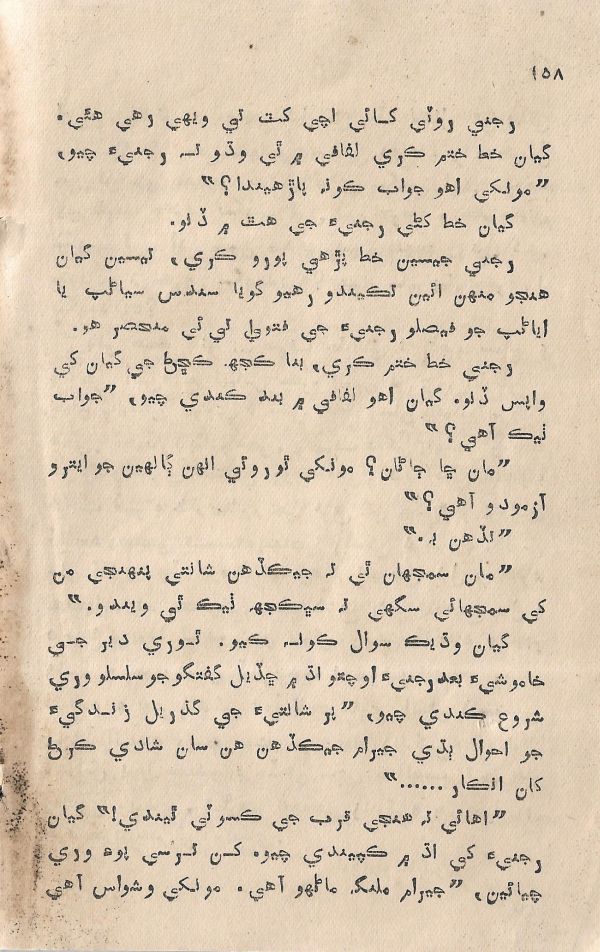 ۱۵۸
رجني روٽي کائي اچي کٽ تي ويهي رهي هئي.
گيان خط ختم ڪري لفافي ۾ ٿي وڌو تہ رجنيءَ چيو،
”مونکي اهو جواب ڪونہ پاڙهيندا؟“
گيان خط کڻي رجنيءَ جي هٿ ۾ ڏنو.
رجني جيسين خط پڙهي پورو ڪري، تيسين گيان
هنجو منهن ائين تڪيندو رهيو گويا سندس سياڻپ يا
اياڻپ جو فيصلو رجنيءَ جي فتويٰ تي ئي منحصر هو.
رجني خط ختم ڪري، بنا ڪجھہ ڪڇڻ جي گيان کي
واپس ڏنو. گيان اهو لفافي ۾ بند ڪندي چيو، ”جواب
ٺيڪ آهي؟“
”مان ڇا ڄاڻان؟ مونکي ٿوروئي انهن ڳالهين جو ايترو
آزمودو آهي؟“
”تڏهن بہ.“
”مان سمجهان ٿي تہ جيڪڏهن شانتي پنهنجي من
کي سمجهائي سگهي تہ سڀڪجھہ ٺيڪ ٿي ويندو.“
گيان وڌيڪ سوال ڪونہ ڪيو. ٿوري دير جي
خاموشيءَ بعد رجنيءَ اوچتو اڌ ۾ ڇڏيل گفتگو جو سلسلو وري
شروع ڪندي چيو، ”پر شانتيءَ جي گذريل زندگيءَ
جو احوال ٻڌي جيرام جيڪڏهن هن سان شادي ڪرڻ
کان انڪار......“
”اهائي تہ هنجي قرب جي ڪسوٽي ٿيندي!“ گيان
رجنيءَ کي اڌ ۾ ڪٽيندي چيو. کن ترسي پوءِ وري
چيائين، ”جيرام ملنگ ماڻهو آهي. مونکي وشواس آهي